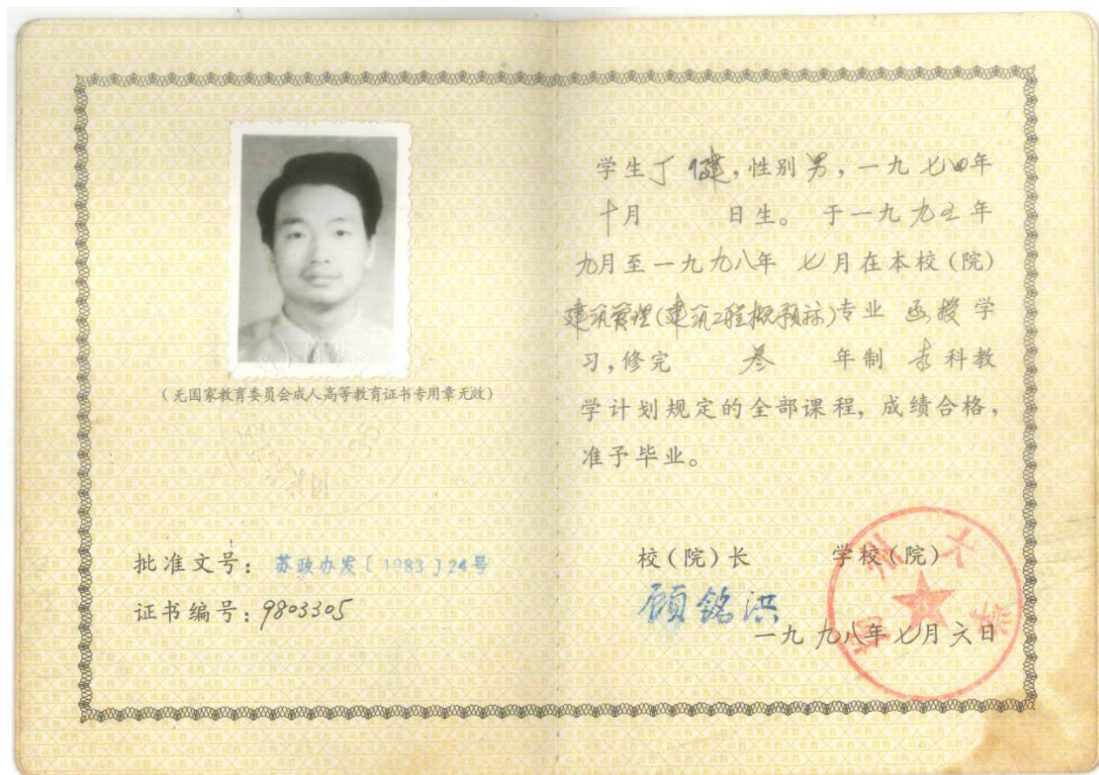 （无国家教育委员会成人高等教育证书专用章无效）
批准文号：苏政办发〔1983〕24号
证书编号：9803305
学生丁健，性别男，一九七四年
十月 日生。于一九九五年
九月至一九九八年七月在本校（院）
建筑管理（建筑工程概预算）专业 函授学
习，修完 叁 年制 专科教
学计划规定的全部课程，成绩合格，
准予毕业。
校（院）长 学校（院）
顾铭洪
一九九八年七月六日